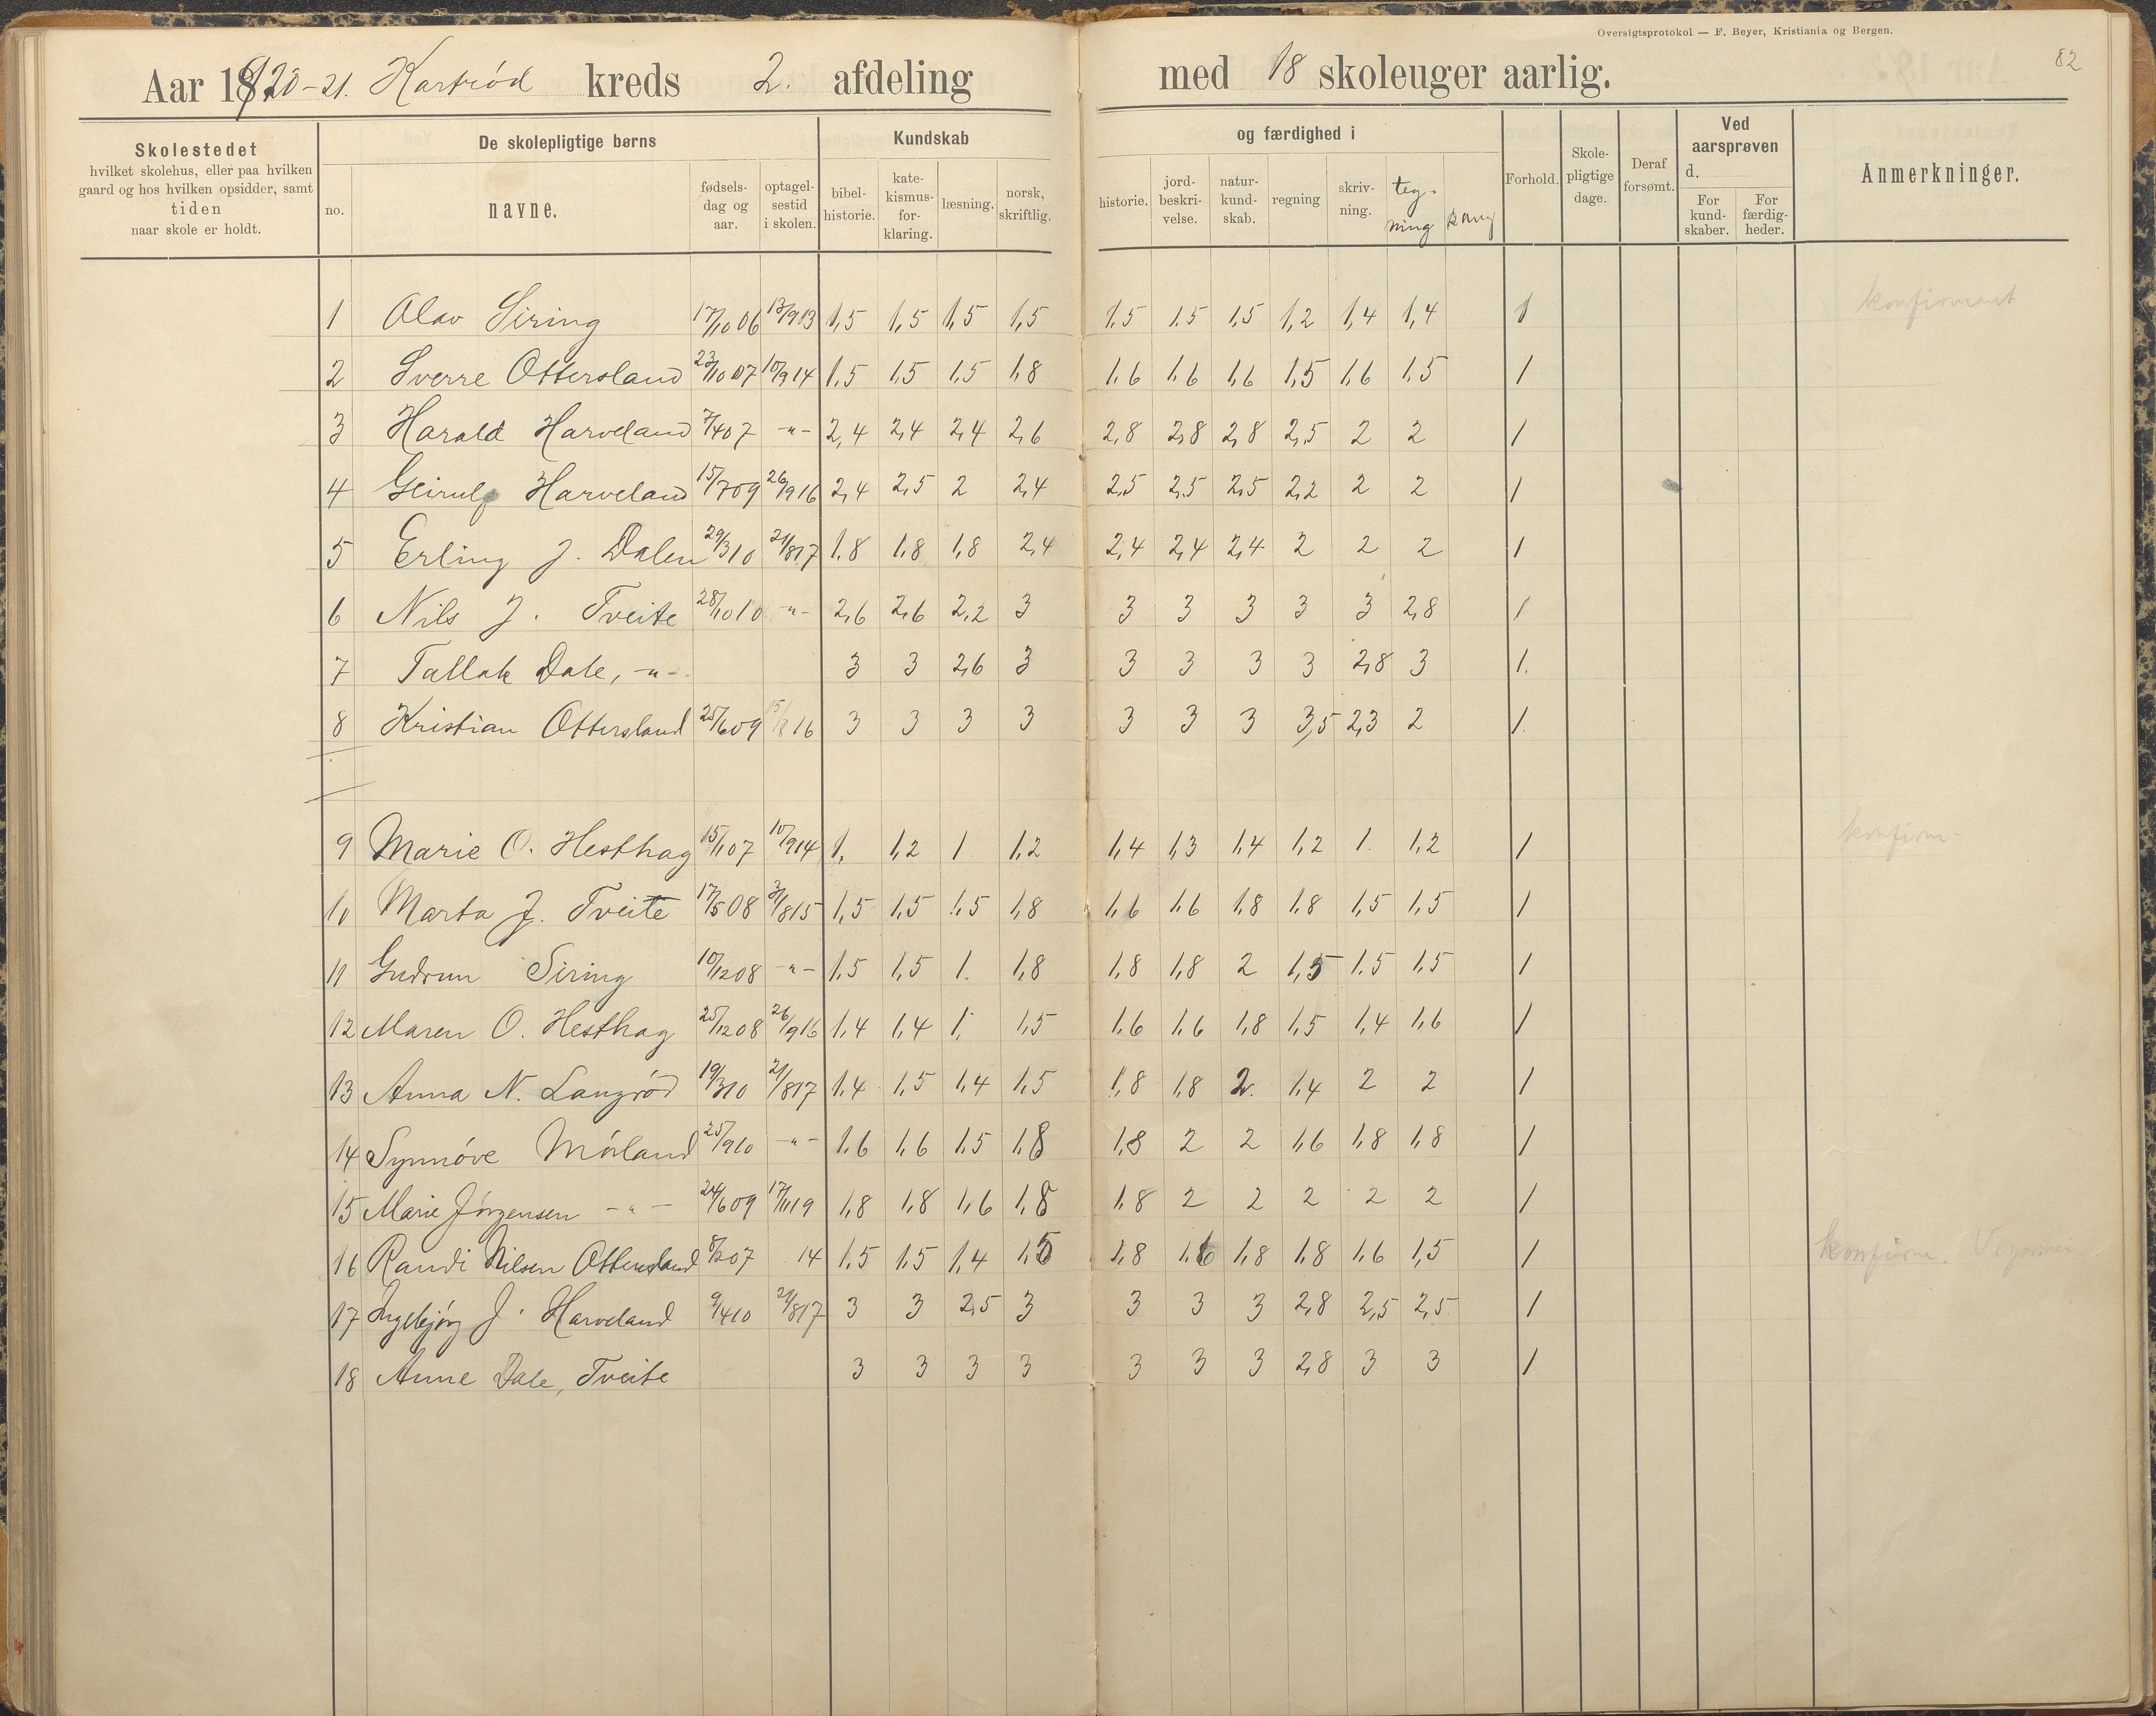 Oversigtsprotokol — F. Beyer, Kristiania og Bergen.
82
Aar 1920-21. Kartrød kreds 2. afdeling med 18 skoleuger aarlig.
Skolestedet
hvilket skolehus, eller paa hvilken
gaard og hos hvilken opsidder, samt
tiden
naar skole er holdt.
De skolepligtige børns
no.
navne.
fødsels-
dag og
aar.
optagel-
sestid
i skolen.
Kundskab
bibel-
historie.
kate-
kismus-
for-
klaring.
læsning.
norsk,
skriftlig.
og færdighed i
historie.
jord-
beskri-
velse.
natur-
kund-
skab.
regning
skriv-
ning.
teg-
ning
sang
Forhold.
Skole-
pligtige
dage.
Deraf
forsømt.
Ved
aarsprøven
d.
For
kund-
skaber.
For
færdig-
heder.
Anmerkninger.
1 Olav Siring 17/10 06 13/9 13 1,5 1,5 1,5 1,5 1,5 1,5 1,5 1,2 1,4 1,4 1 konfirmant
2 Sverre Ottersland 23/10 07 10/9 14 1,5 1,5 1,5 1,8 1,6 1,6 1,6 1,5 1,6 1,5 1
3 Harald Harveland 7/4 07 -"- 2,4 2,4 2,4 2,6 2,8 2,8 2,8 2,5 2 2 1
4 Geirulf Harveland 15/7 09 26/9 16 2,4 2,5 2 2,4 2,5 2,5 2,5 2,2 2 2 1
5 Erling J. Dalen 29/3 10 21/8 17 1,8 1,8 1,8 2,4 2,4 2,4 2,4 2 2 2 1
6 Nils J. Tveite 28/10 10 -"- 2,6 2,6 2,2 3 3 3 3 3 3 2,8 1
7 Tallak Dale, -"- 3 3 2,6 3 3 3 3 3 2,8 3 1.
8 Kristian Ottersland 25/6 09 16 3 3 3 3 3 3 3 3,5 2,3 2 1.
9 Marie O. Hesthag 15/1 07 10/9 14 1, 1,2 1 1,2 1,4 1,3 1,4 1,2 1. 1,2 1 konfirm-
10 Marta J. Tveite 17/5 08 31/8 15 1,5 1,5 1,5 1,8 1,6 1,6 1,8 1,8 1,5 1,5 1
11 Gudrun Siring 10/12 08 -"- 1,5 1,5 1. 1,8 1,8 1,8 2 1,5 1,5 1,5 1
12 Maren O. Hesthag 25/12 08 26/9 16 1,4 1,4 1, 1,5 1,6 1,6 1,8 1,5 1,4 1,6 1
13 Anna N. Langrød 19/3 10 21/8 17 1,4 1,5 1,4 1,5 1,8 1,8 2. 1,4 2 2 1
14 Synnøve Mørland 25/9 10 -"- 1,6 1,6 1,5 1,8 1,8 2 2 1,6 1,8 1,8 1
15 Marie Jørgensen -"- 24/6 09 17/11 19 1,8 1,8 1,6 1,8 1,8 2 2 2 2 2 1
16 Randi Nilsen Ottersland 8/2 07 14 1,5 1,5 1,4 1,5 1,8 1,6 1,8 1,8 1,6 1,5 1 konfirm.
17 Ingebjørg J. Harveland 9/4 10 21/8 17 3 3 2,5 3 3 3 3 2,8 2,5 2,5 1
18 Anne Dale, Tveite 3 3 3 3 3 3 3 2,8 3 3 1